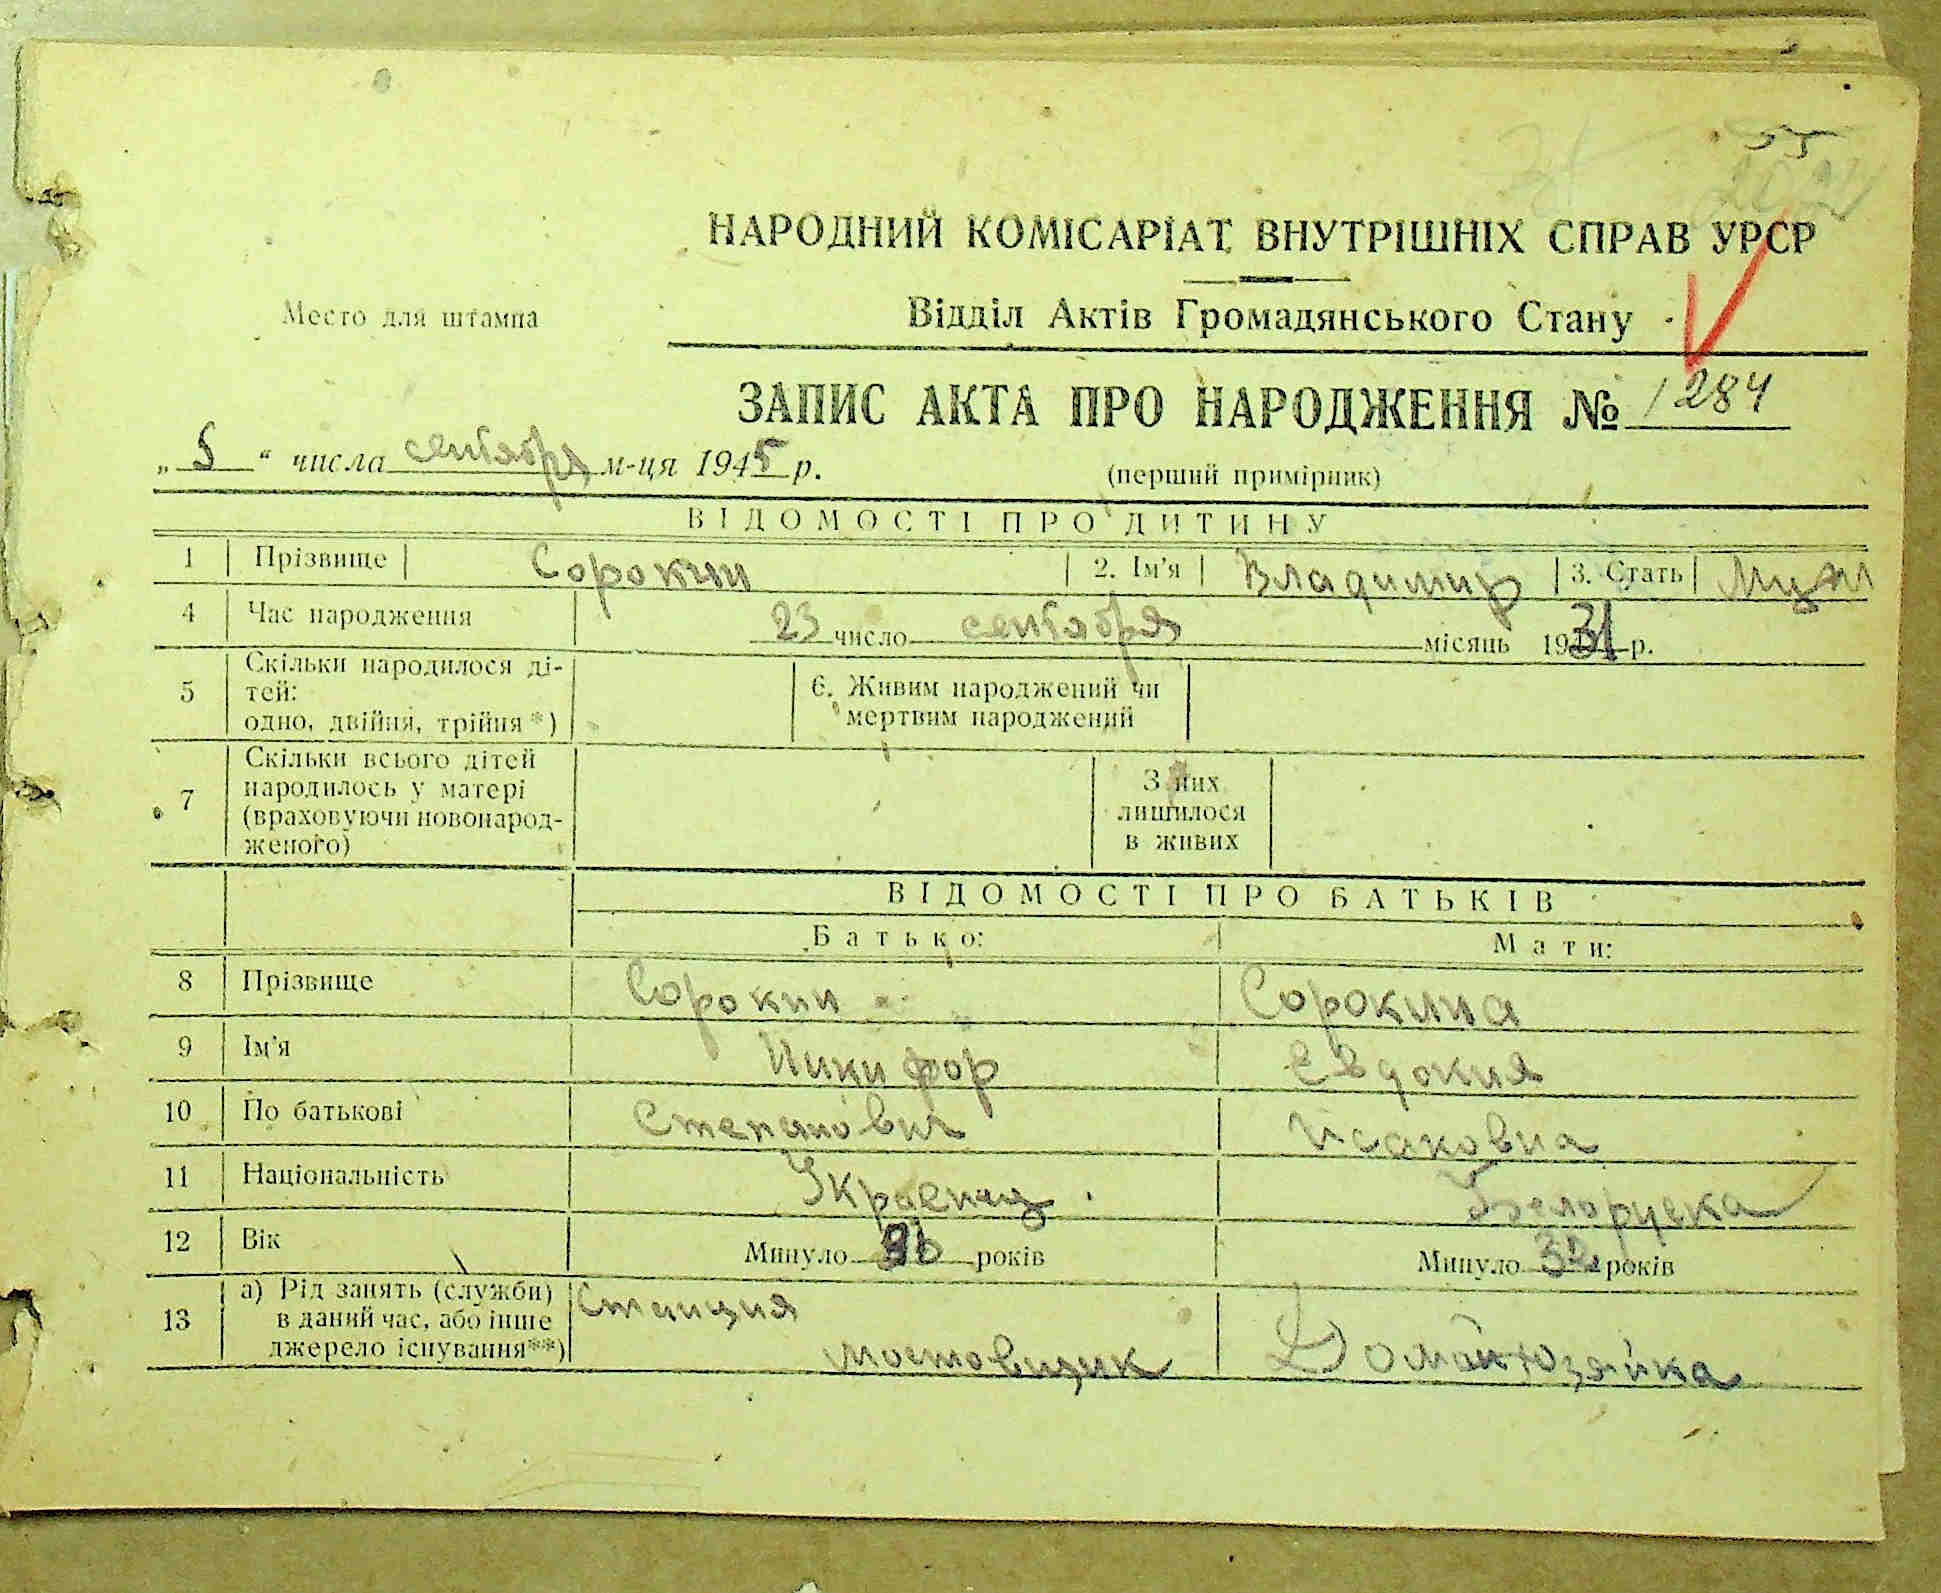 55
НАРОДНИЙ КОМІСАРІАТ ВНУТРІШНІХ СПРАВ УРСР
Место для штампа
Відділ Актів Громадянського Стану
ЗАПИС АКТА ПРО НАРОДЖЕННЯ № 1284
„5“ числа сентября м-ця 1945 р.
(перший примірник)
ВІДОМОСТІ ПРО ДИТИНУ
1 Прізвище Сорокин 2. Ім'я Владимир 3. Стать Муж
4 Час народження 23 число сентября місяць 1931 р.
5 Скільки народилося ді-
тей:
одно, двійня, трійня *)
6. Живим народжений чи
мертвим народжений
7 Скільки всього дітей
народилось у матері
(враховуючи новонарод-
женого)
З них
лишилося
в живих
ВІДОМОСТІ ПРО БАТЬКІВ
Батько: Мати:
8 Прізвище Сорокин Сорокина
9 Ім'я Никифор Евдокия
10 По батькові Степанович Исаковна
11 Національність Украенец Белоруска
12 Вік Минуло років Минуло 32 років
13 а) Рід занять (служби)
в даний час, або інше
джерело існування**)
Станция
мостовщик Домохозяйка